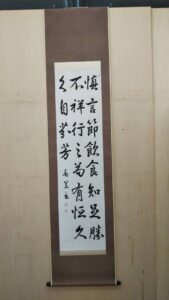 慎言節飲食知足勝
不祥行之苟有恒久
久自芬芳